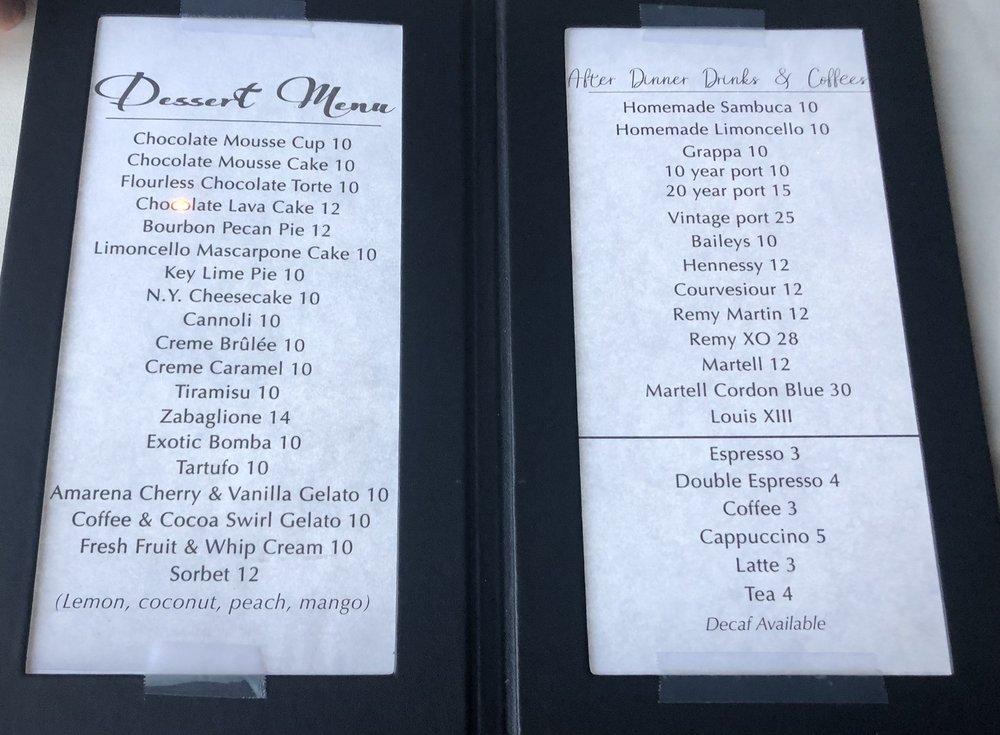 Dessert Menu
Chocolate Mousse Cup 10
Chocolate Mousse Cake 10
Flourless Chocolate Torte 10
Chocolate Lava Cake 12
Bourbon Pecan Pie 12
Limoncello Mascarpone Cake 10
Key Lime Pie 10
N.Y. Cheesecake 10
Cannoli 10
Creme Brûlée 10
Creme Caramel 10
Tiramisu 10
Zabaglione 14
Exotic Bomba 10
Tartufo 10
Amarena Cherry & Vanilla Gelato 10
Coffee & Cocoa Swirl Gelato 10
Fresh Fruit & Whip Cream 10
Sorbet 12
(Lemon, coconut, peach, mango)
After Dinner Drinks & Coffees
Homemade Sambuca 10
Homemade Limoncello 10
Grappa 10
10 year port 10
20 year port 15
Vintage port 25
Baileys 10
Hennessy 12
Courvesiour 12
Remy Martin 12
Remy XO 28
Martell 12
Martell Cordon Blue 30
Louis XIII
Espresso 3
Double Espresso 4
Coffee 3
Cappuccino 5
Latte 3
Tea 4
Decaf Available